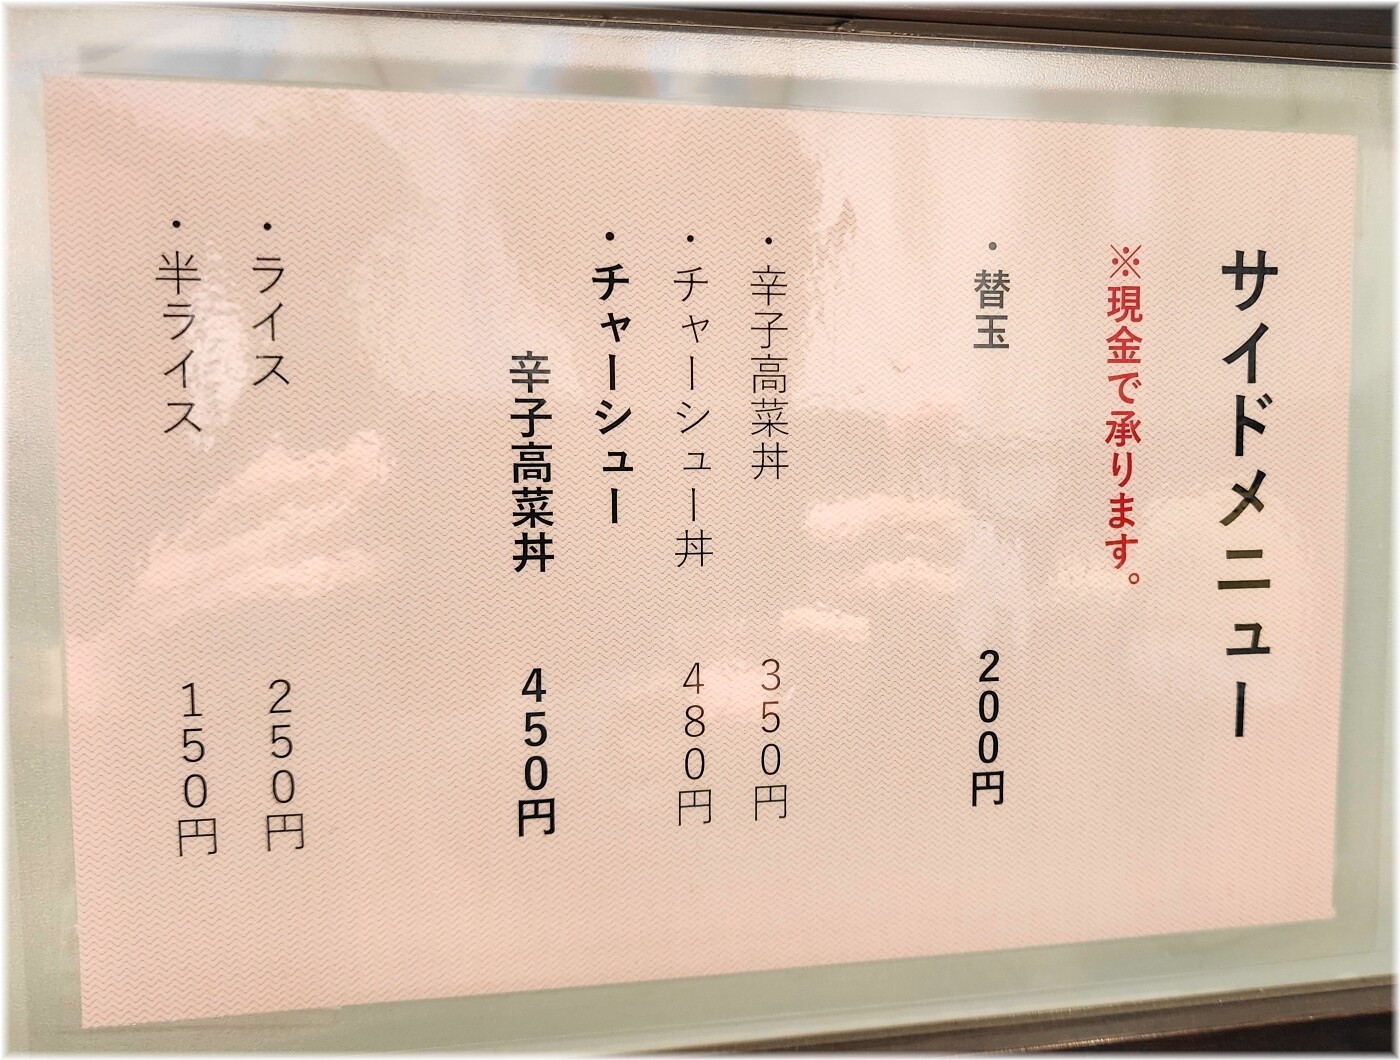 サイドメニュー
※現金で承ります。
・替玉 200円
・辛子高菜丼 350円
・チャーシュー丼 480円
・チャーシュー
辛子高菜丼 450円
・ライス 250円
・半ライス 150円